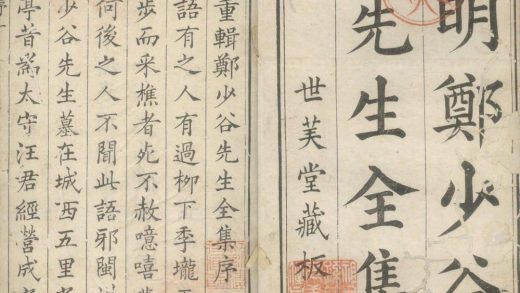 明鄭少谷
先生全集
世芙堂藏板
重輯鄭少谷先生全集序
語有之人有過柳下季壠
步而采樵者死不赦噫嘻
何後之人不聞此語邪閩
少谷先生墓在城西五里
亭昔為太守汪君經營成